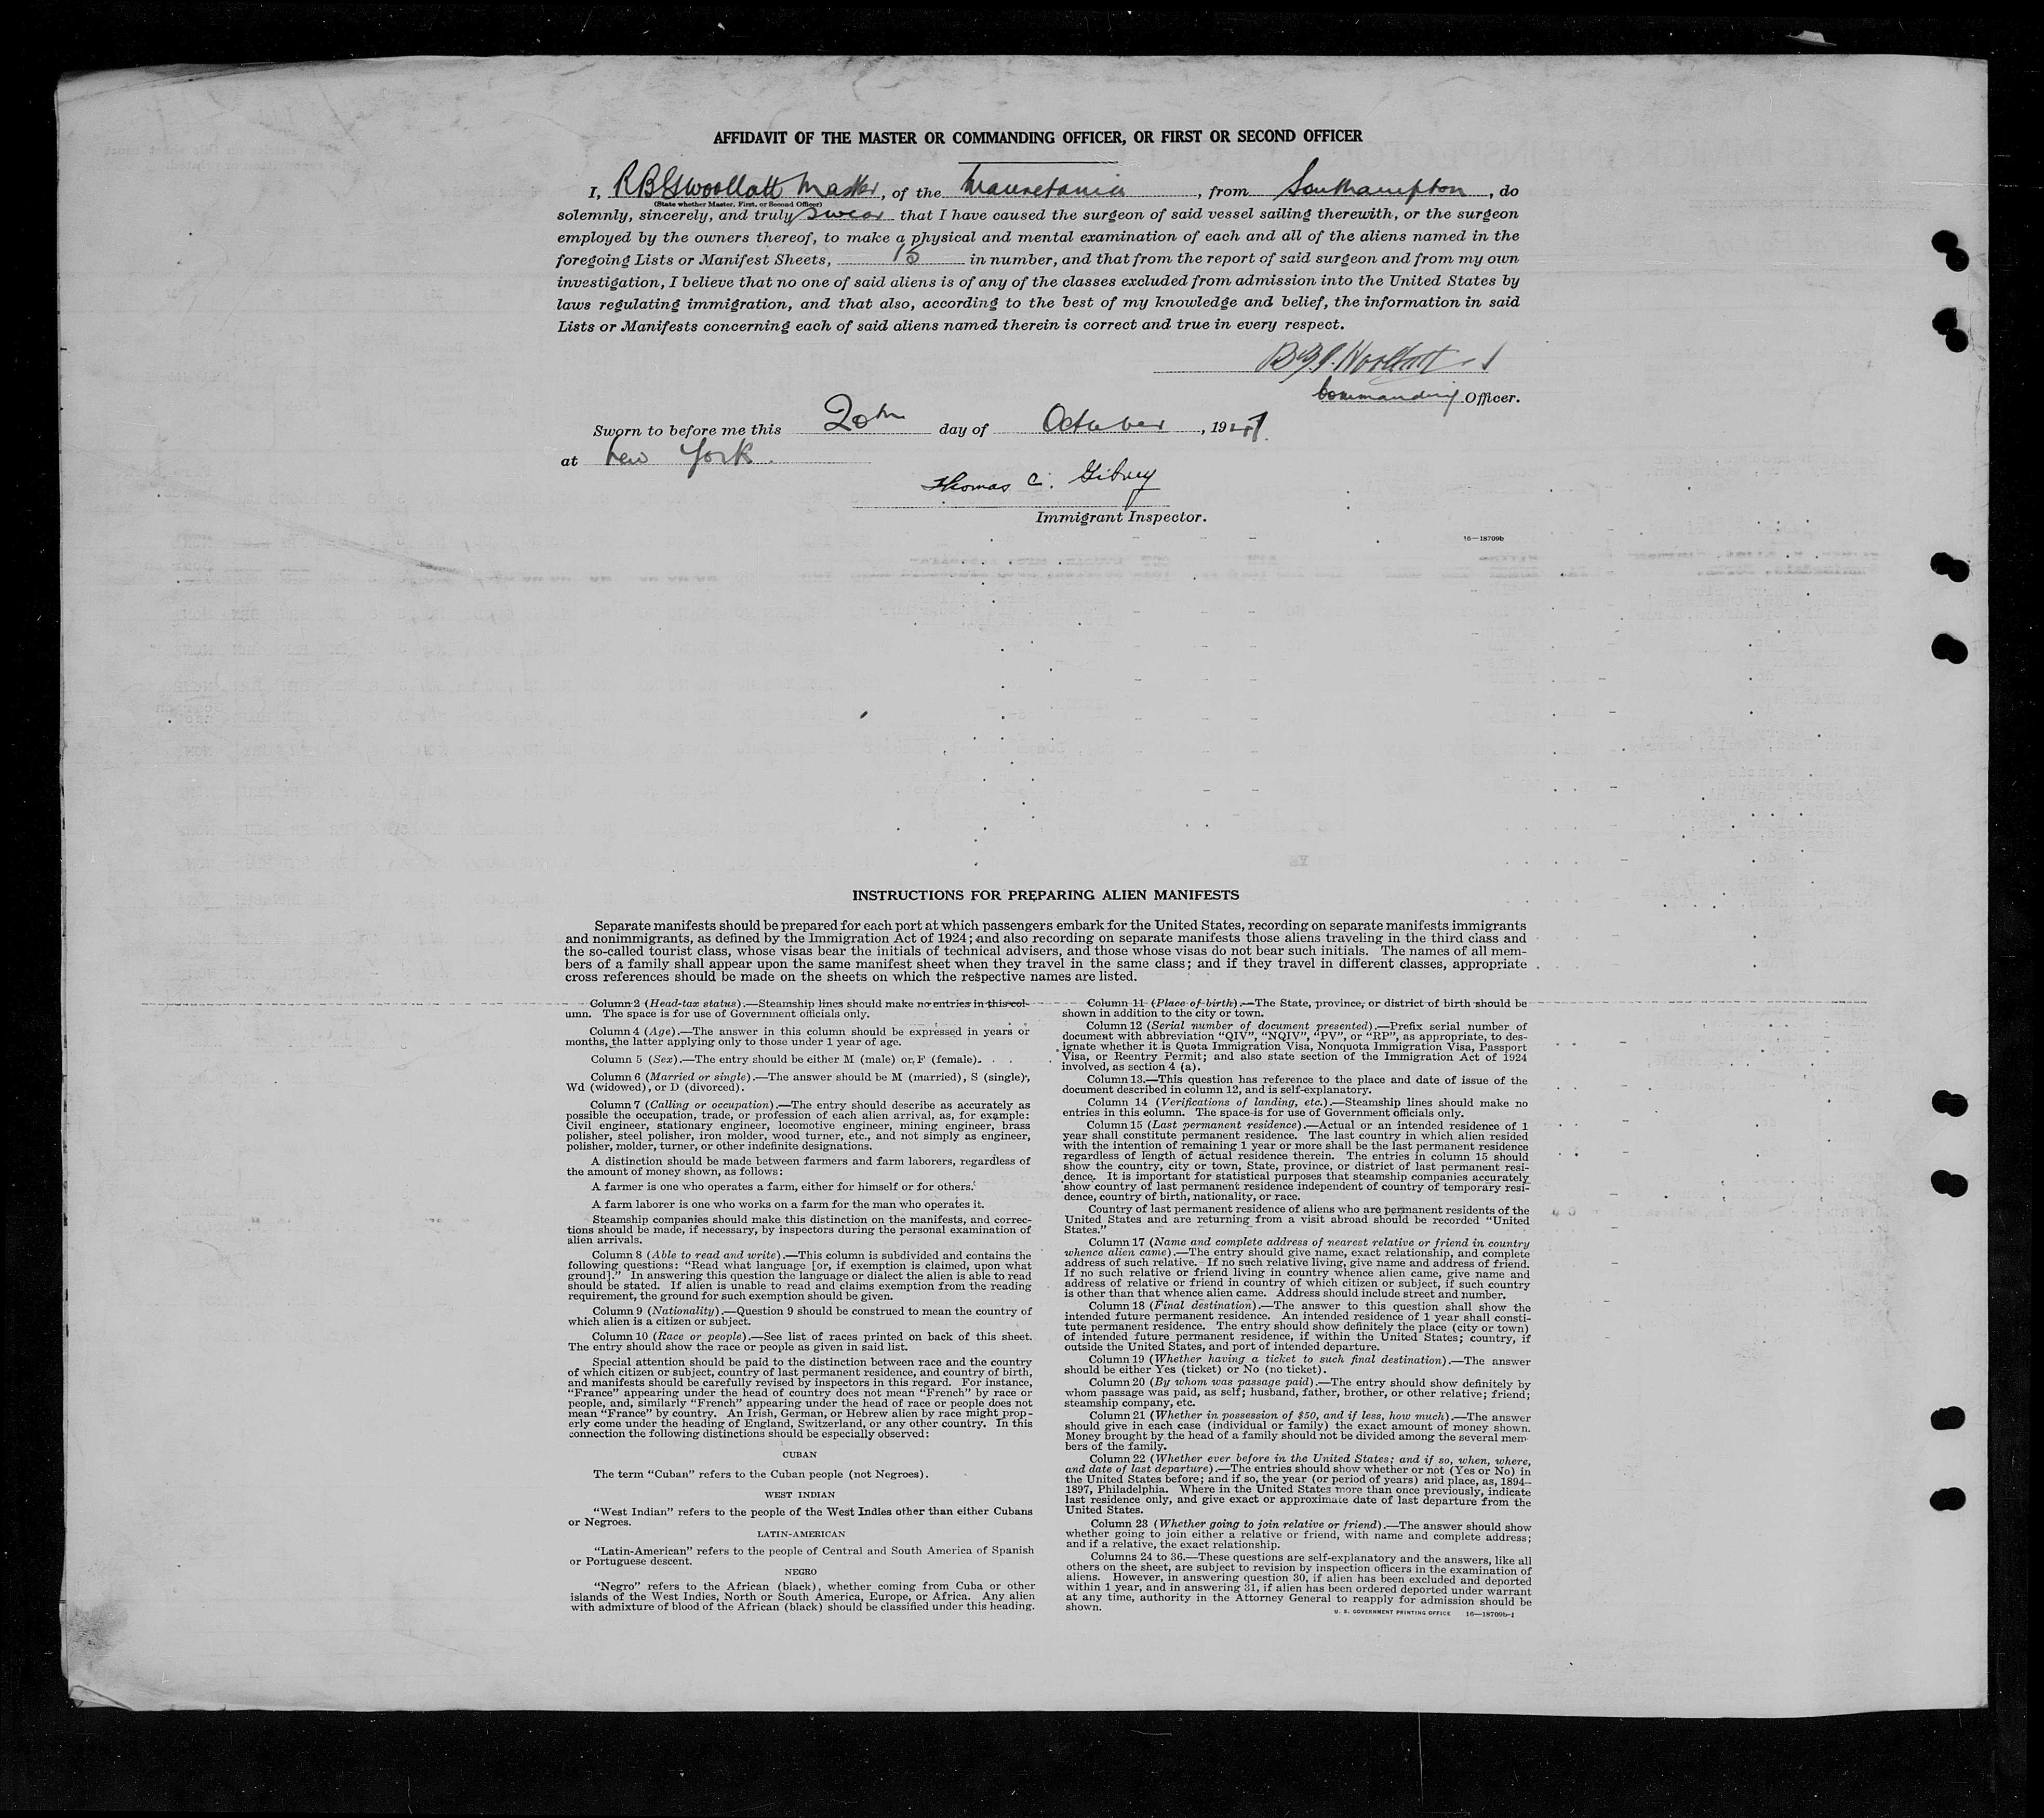 AFFIDAVIT OF THE MASTER OR COMMANDING OFFICER, OR FIRST OR SECOND OFFICER
I, Woollatt Master, of the Mauretania, from Southampton, do
(State whether Master, First, or Second Officer)
solemnly, sincerely, and truly swear that I have caused the surgeon of said vessel sailing therewith, or the surgeon
employed by the owners thereof, to make a physical and mental examination of each and all of the aliens named in the
foregoing Lists or Manifest Sheets, 15 in number, and that from the report of said surgeon and from my own
investigation, I believe that no one of said aliens is of any of the classes excluded from admission into the United States by
laws regulating immigration, and that also, according to the best of my knowledge and belief, the information in said
Lists or Manifests concerning each of said aliens named therein is correct and true in every respect.
Woollatt
Commanding Officer.
Sworn to before me this 20th day of October, 1947.
at New York.
Thomas C. Gibney
Immigrant Inspector.
16—18709b
INSTRUCTIONS FOR PREPARING ALIEN MANIFESTS
Separate manifests should be prepared for each port at which passengers embark for the United States, recording on separate manifests immigrants
and nonimmigrants, as defined by the Immigration Act of 1924; and also recording on separate manifests those aliens traveling in the third class and
the so-called tourist class, whose visas bear the initials of technical advisers, and those whose visas do not bear such initials. The names of all mem-
bers of a family shall appear upon the same manifest sheet when they travel in the same class; and if they travel in different classes, appropriate
cross references should be made on the sheets on which the respective names are listed.
Column 2 (Head-tax status).—Steamship lines should make no entries in this col-
umn. The space is for use of Government officials only.
Column 4 (Age).—The answer in this column should be expressed in years or
months, the latter applying only to those under 1 year of age.
Column 5 (Sex).—The entry should be either M (male) or F (female).
Column 6 (Married or single).—The answer should be M (married), S (single),
Wd (widowed), or D (divorced).
Column 7 (Calling or occupation).—The entry should describe as accurately as
possible the occupation, trade, or profession of each alien arrival, as, for example:
Civil engineer, stationary engineer, locomotive engineer, mining engineer, brass
polisher, steel polisher, iron molder, wood turner, etc., and not simply as engineer,
polisher, molder, turner, or other indefinite designations.
A distinction should be made between farmers and farm laborers, regardless of
the amount of money shown, as follows:
A farmer is one who operates a farm, either for himself or for others.
A farm laborer is one who works on a farm for the man who operates it.
Steamship companies should make this distinction on the manifests, and correc-
tions should be made, if necessary, by inspectors during the personal examination of
alien arrivals.
Column 8 (Able to read and write).—This column is subdivided and contains the
following questions: "Read what language [or, if exemption is claimed, upon what
ground]." In answering this question the language or dialect the alien is able to read
should be stated. If alien is unable to read and claims exemption from the reading
requirement, the ground for such exemption should be given.
Column 9 (Nationality).—Question 9 should be construed to mean the country of
which alien is a citizen or subject.
Column 10 (Race or people).—See list of races printed on back of this sheet.
The entry should show the race or people as given in said list.
Special attention should be paid to the distinction between race and the country
of which citizen or subject, country of last permanent residence, and country of birth,
and manifests should be carefully revised by inspectors in this regard. For instance,
"France" appearing under the head of country does not mean "French" by race or
people, and, similarly "French" appearing under the head of race or people does not
mean "France" by country. An Irish, German, or Hebrew alien by race might prop-
erly come under the heading of England, Switzerland, or any other country. In this
connection the following distinctions should be especially observed:
CUBAN
The term "Cuban" refers to the Cuban people (not Negroes).
WEST INDIAN
"West Indian" refers to the people of the West Indies other than either Cubans
or Negroes.
LATIN-AMERICAN
"Latin-American" refers to the people of Central and South America of Spanish
or Portuguese descent.
NEGRO
"Negro" refers to the African (black), whether coming from Cuba or other
islands of the West Indies, North or South America, Europe, or Africa. Any alien
with admixture of blood of the African (black) should be classified under this heading.
Column 11 (Place of birth).—The State, province, or district of birth should be
shown in addition to the city or town.
Column 12 (Serial number of document presented).—Prefix serial number of
document with abbreviation "QIV", "NQIV", "PV", or "RP", as appropriate, to des-
ignate whether it is Quota Immigration Visa, Nonquota Immigration Visa, Passport
Visa, or Reentry Permit; and also state section of the Immigration Act of 1924
involved, as section 4 (a).
Column 13.—This question has reference to the place and date of issue of the
document described in column 12, and is self-explanatory.
Column 14 (Verifications of landing, etc.).—Steamship lines should make no
entries in this column. The space is for use of Government officials only.
Column 15 (Last permanent residence).—Actual or an intended residence of 1
year shall constitute permanent residence. The last country in which alien resided
with the intention of remaining 1 year or more shall be the last permanent residence
regardless of length of actual residence therein. The entries in column 15 should
show the country, city or town, State, province, or district of last permanent resi-
dence. It is important for statistical purposes that steamship companies accurately
show country of last permanent residence independent of country of temporary resi-
dence, country of birth, nationality, or race.
Country of last permanent residence of aliens who are permanent residents of the
United States and are returning from a visit abroad should be recorded "United
States."
Column 17 (Name and complete address of nearest relative or friend in country
whence alien came).—The entry should give name, exact relationship, and complete
address of such relative. If no such relative living, give name and address of friend.
If no such relative or friend living in country whence alien came, give name and
address of relative or friend in country of which citizen or subject, if such country
is other than that whence alien came. Address should include street and number.
Column 18 (Final destination).—The answer to this question shall show the
intended future permanent residence. An intended residence of 1 year shall consti-
tute permanent residence. The entry should show definitely the place (city or town)
of intended future permanent residence, if within the United States; country, if
outside the United States, and port of intended departure.
Column 19 (Whether having a ticket to such final destination).—The answer
should be either Yes (ticket) or No (no ticket).
Column 20 (By whom was passage paid).—The entry should show definitely by
whom passage was paid, as self; husband, father, brother, or other relative; friend;
steamship company, etc.
Column 21 (Whether in possession of $50, and if less, how much).—The answer
should give in each case (individual or family) the exact amount of money shown.
Money brought by the head of a family should not be divided among the several mem-
bers of the family.
Column 22 (Whether ever before in the United States; and if so, when, where,
and date of last departure).—The entries should show whether or not (Yes or No) in
the United States before; and if so, the year (or period of years) and place, as, 1894–
1897, Philadelphia. Where in the United States more than once previously, indicate
last residence only, and give exact or approximate date of last departure from the
United States.
Column 23 (Whether going to join relative or friend).—The answer should show
whether going to join either a relative or friend, with name and complete address;
and if a relative, the exact relationship.
Columns 24 to 36.—These questions are self-explanatory and the answers, like all
others on the sheet, are subject to revision by inspection officers in the examination of
aliens. However, in answering question 30, if alien has been excluded and deported
within 1 year, and in answering 31, if alien has been ordered deported under warrant
at any time, authority in the Attorney General to reapply for admission should be
shown.
U. S. GOVERNMENT PRINTING OFFICE 16—18709b-1